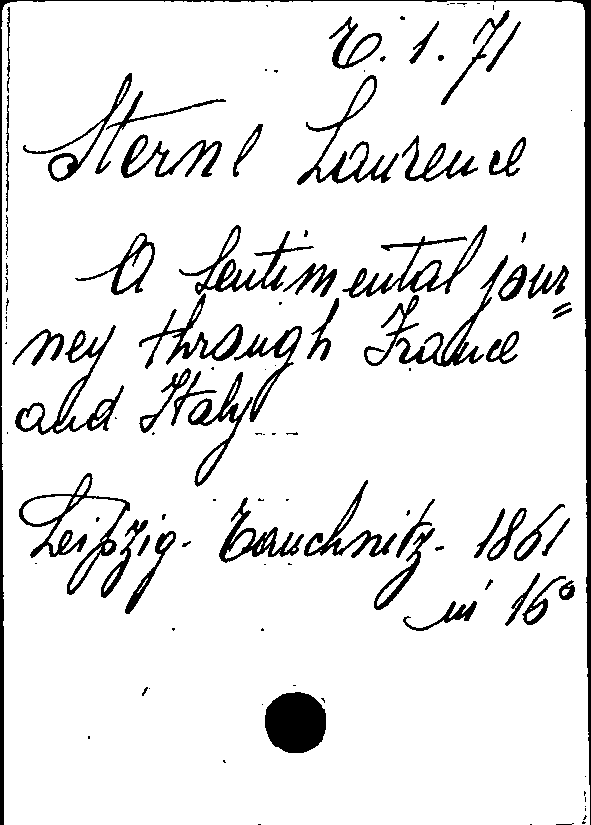 T. 1. 71
Sterne Laurence
A Sentimental jour=
ney through France
and Italy
Leipzig. Tauchnitz. 1861
in 16°